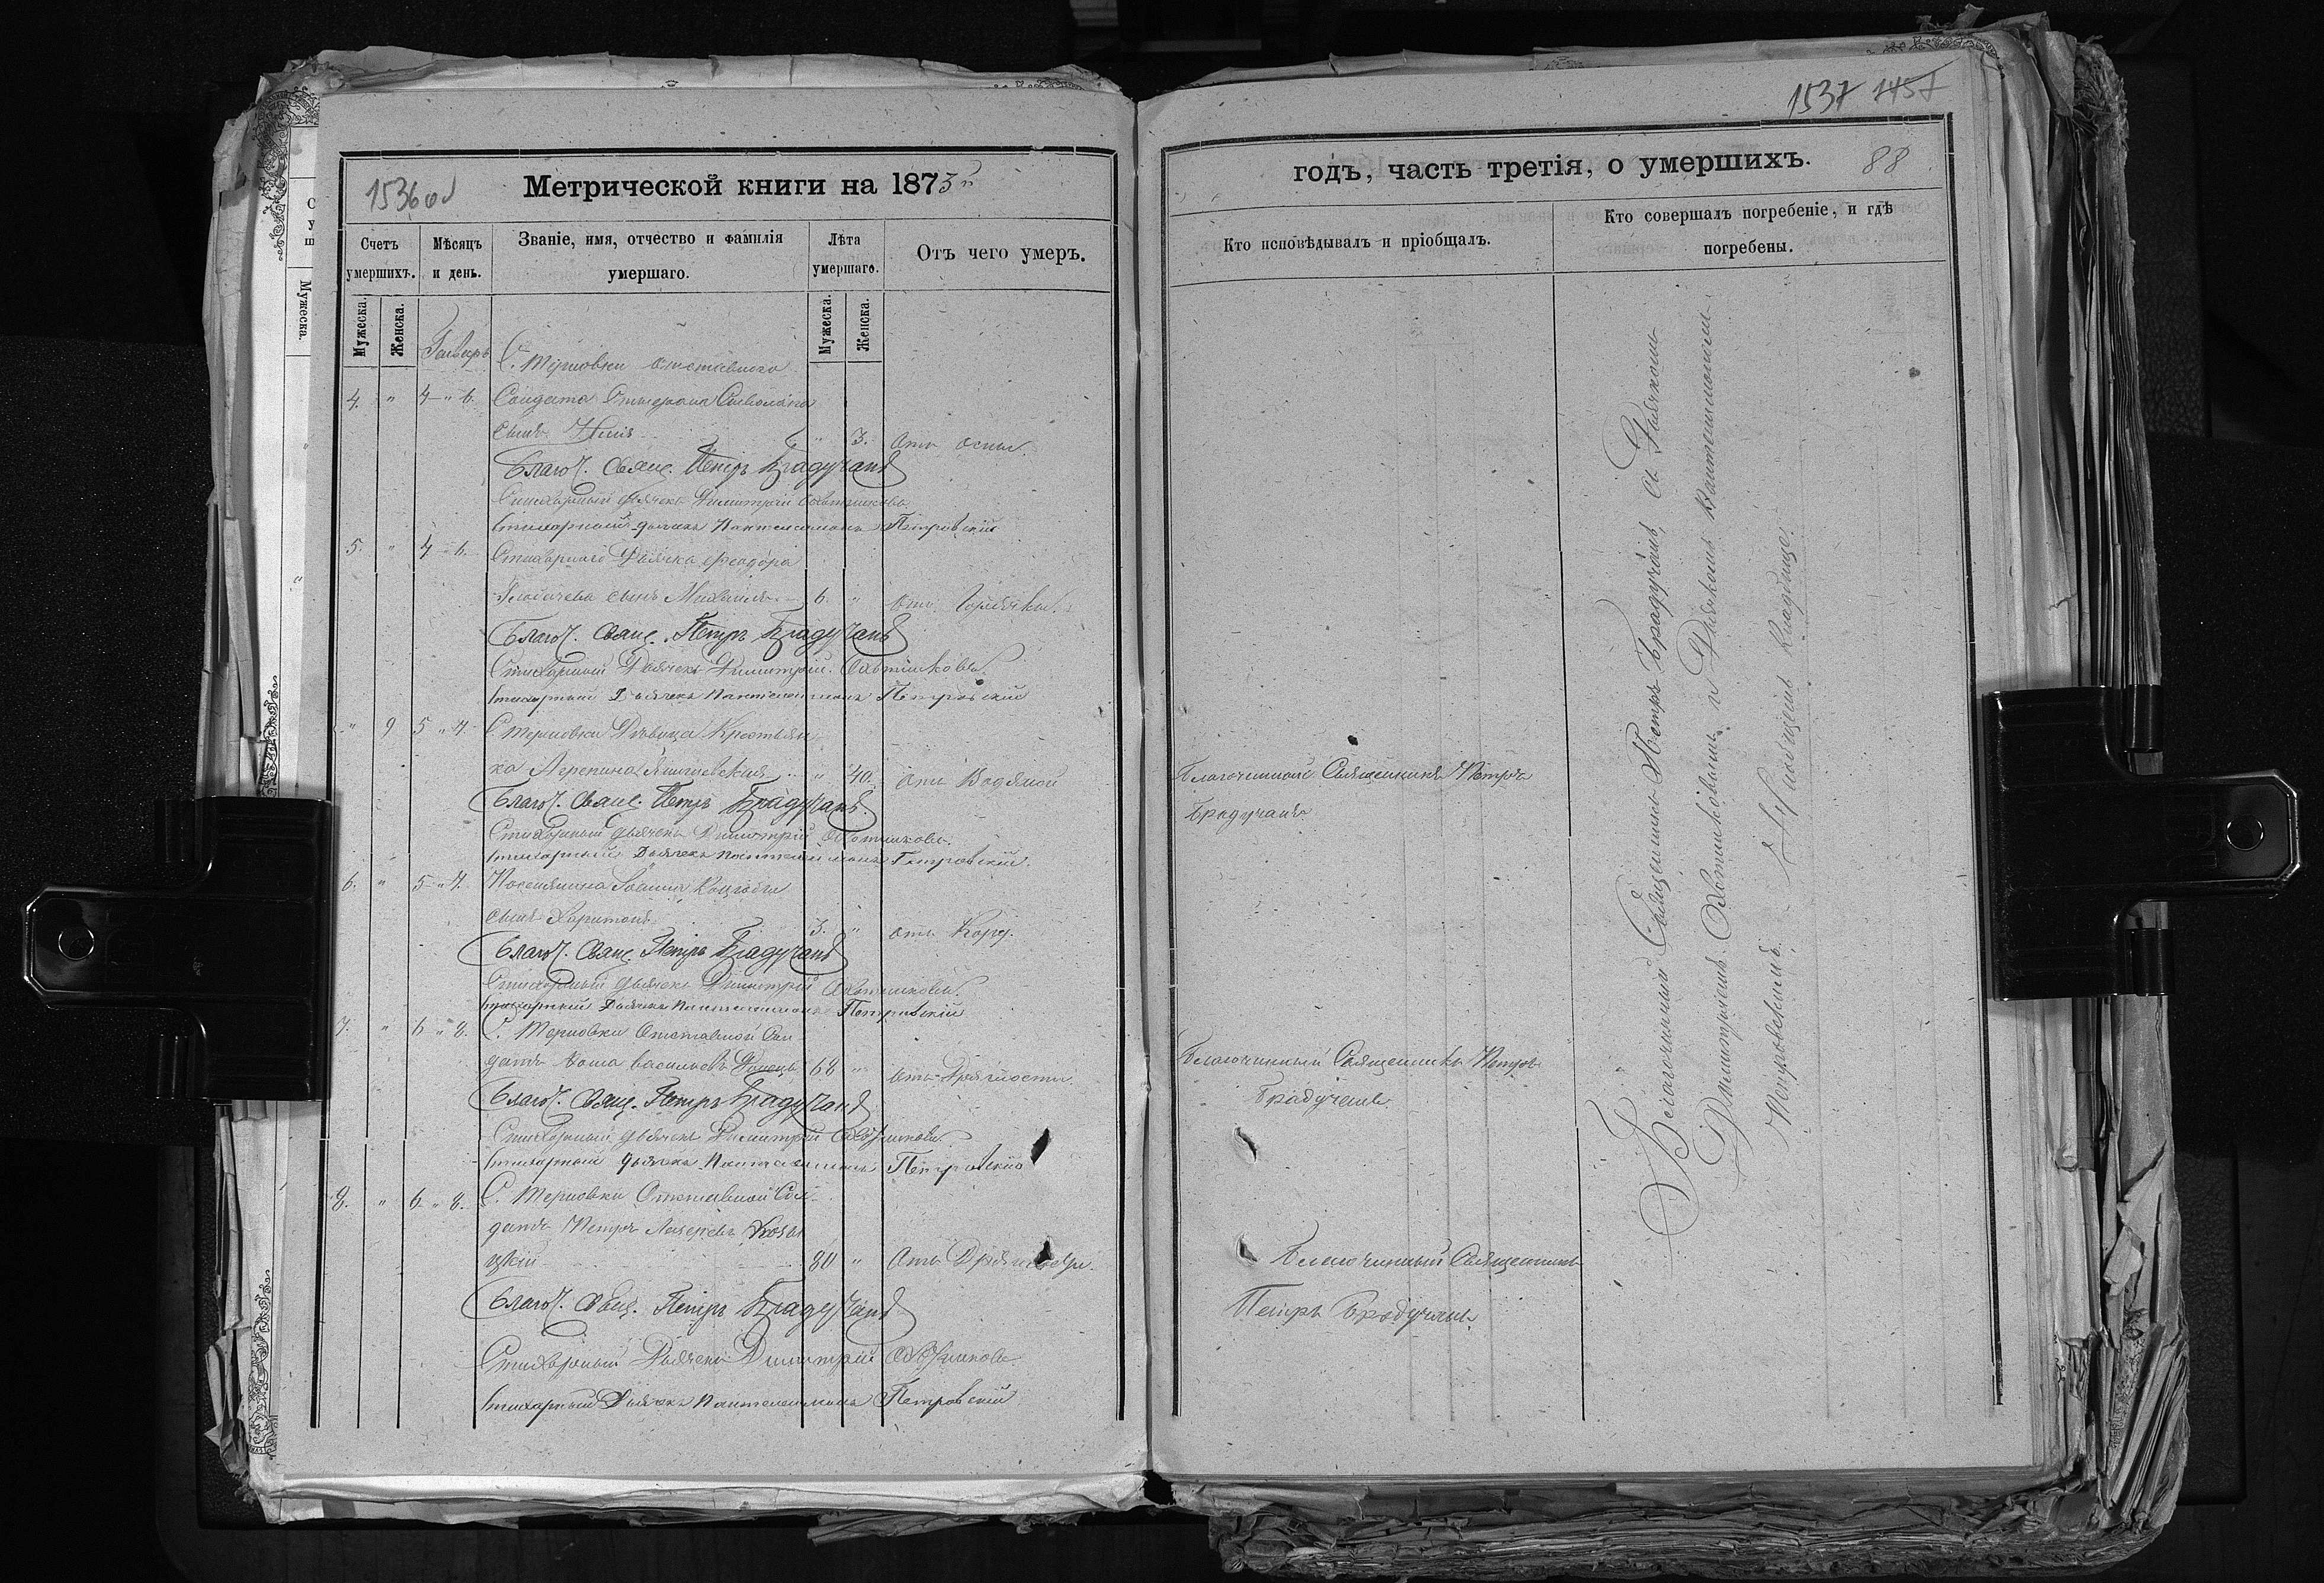 1536 об
Метрической книги на 1873й
Счетъ умершихъ.
Мѣсяцъ и день.
Званіе, имя, отчество и фамилія умершаго.
Лѣта умершаго.
Отъ чего умеръ.
Мужеска.
Женска.
Мужеска.
Женска.
Январь
С. Терновки отставного
4. " 4 " 6. Солдата
сынъ " 3. Отъ оспы.
Благоч. Свящ. Петръ Брадучанъ
Стихарный дьячекъ Димитрій
Стихарный дьячекъ Пантелеимонъ Петровскій
5. " 4 " 6. Стихарнаго Дьячка Феодора
сынъ Михаилъ 6. " Отъ Горячки.
Благоч. Свящ. Петръ Брадучанъ
Стихарный Дьячекъ Димитрій
Стихарный Дьячекъ Пантелеимонъ Петровскій
" 9 5 " 7. С Терновки Дѣвица Крестьян-
ка Агрепина " 40. Отъ Водяной
Благоч. Свящ. Петръ Брадучанъ
Стихарный дьячекъ Димитрій
Стихарный Дьячекъ Пантелеимонъ Петровскій.
6. " 5 " 7. Поселянина Іоанна
сынъ Харитонъ 3. " Отъ Кору.
Благоч. Свящ. Петръ Брадучанъ
Стихарный дьячекъ Димитрій
Стихарный Дьячекъ Пантелеимонъ Петровскій
7. " 6 " 8. С. Терновки Отставной Сол-
датъ Васильевъ 68 " Отъ Дряхлости
Благоч. Свящ. Петръ Брадучанъ
Стихарный дьячекъ Димитрій
Стихарный дьячекъ Пантелеимонъ Петровскій
8. " 6 " 8. С. Терновки Отставной Сол-
датъ Петръ Лазаревъ
80 " Отъ Дряхлости.
Благоч. Свящ. Петръ Брадучанъ
Стихарный Дьячекъ Димитрій
Стихарный Дьячекъ Пантелеимонъ Петровскій
1537 1457
годъ, часть третія, о умершихъ.
88
Кто исповѣдывалъ и пріобщалъ.
Кто совершалъ погребеніе, и гдѣ погребены.
Благочинный Священникъ Петръ
Брадучанъ
Благочинный Священникъ Петръ
Брадучанъ
Благочинный Священникъ
Петръ Брадучанъ
Благочинный Священникъ Петръ Брадучанъ, съ Дьячкомъ
Димитріемъ и Дьячкомъ Пантелеимономъ
Петровскимъ. На общемъ Кладбище.
Мужеска.